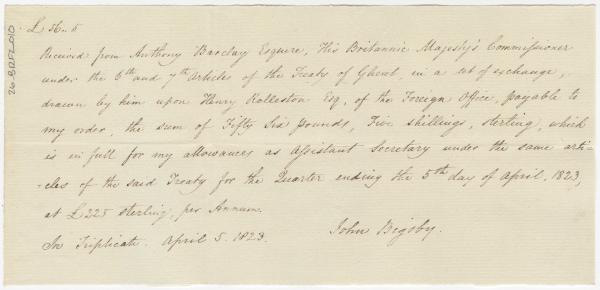 £ 56.. 5
Received from Anthony Barclay Esquire, His Britannic Majesty's Commissioner
under the 6th and 7th Articles of the Treaty of Ghent, in a set of exchange,
drawn by him upon Henry Rolleston Esq, of the Foreign Office, payable to
my order, the sum of Fifty Six pounds, Five shillings, sterling, which
is in full for my allowances as Assistant Secretary under the same arti-
-cles of the said Treaty for the Quarter ending the 5th day of April, 1823,
at £225 sterling, per Annum.
In Triplicate. April 5. 1823. John Bigsby.